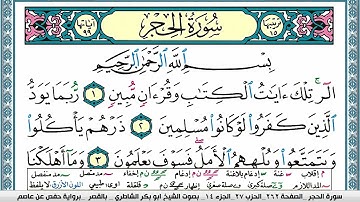 ترتيبها ١٥
سورة الحجر
آياتها ٩٩
بسم الله الرحمن الرحيم
الٓر ۚ تِلْكَ ءَايَٰتُ ٱلْكِتَٰبِ وَقُرْءَانٍ مُّبِينٍ ١ رُّبَمَا يَوَدُّ
ٱلَّذِينَ كَفَرُوا۟ لَوْ كَانُوا۟ مُسْلِمِينَ ٢ ذَرْهُمْ يَأْكُلُوا۟
وَيَتَمَتَّعُوا۟ وَيُلْهِهِمُ ٱلْأَمَلُ ۖ فَسَوْفَ يَعْلَمُونَ ٣ وَمَآ أَهْلَكْنَا
سورة الحجر - الصفحة ٢٦٢ - الحزب ٢٧ - الجزء ١٤ - بصوت الشيخ أبو بكر الشاطري - بالقصر - برواية حفص عن عاصم